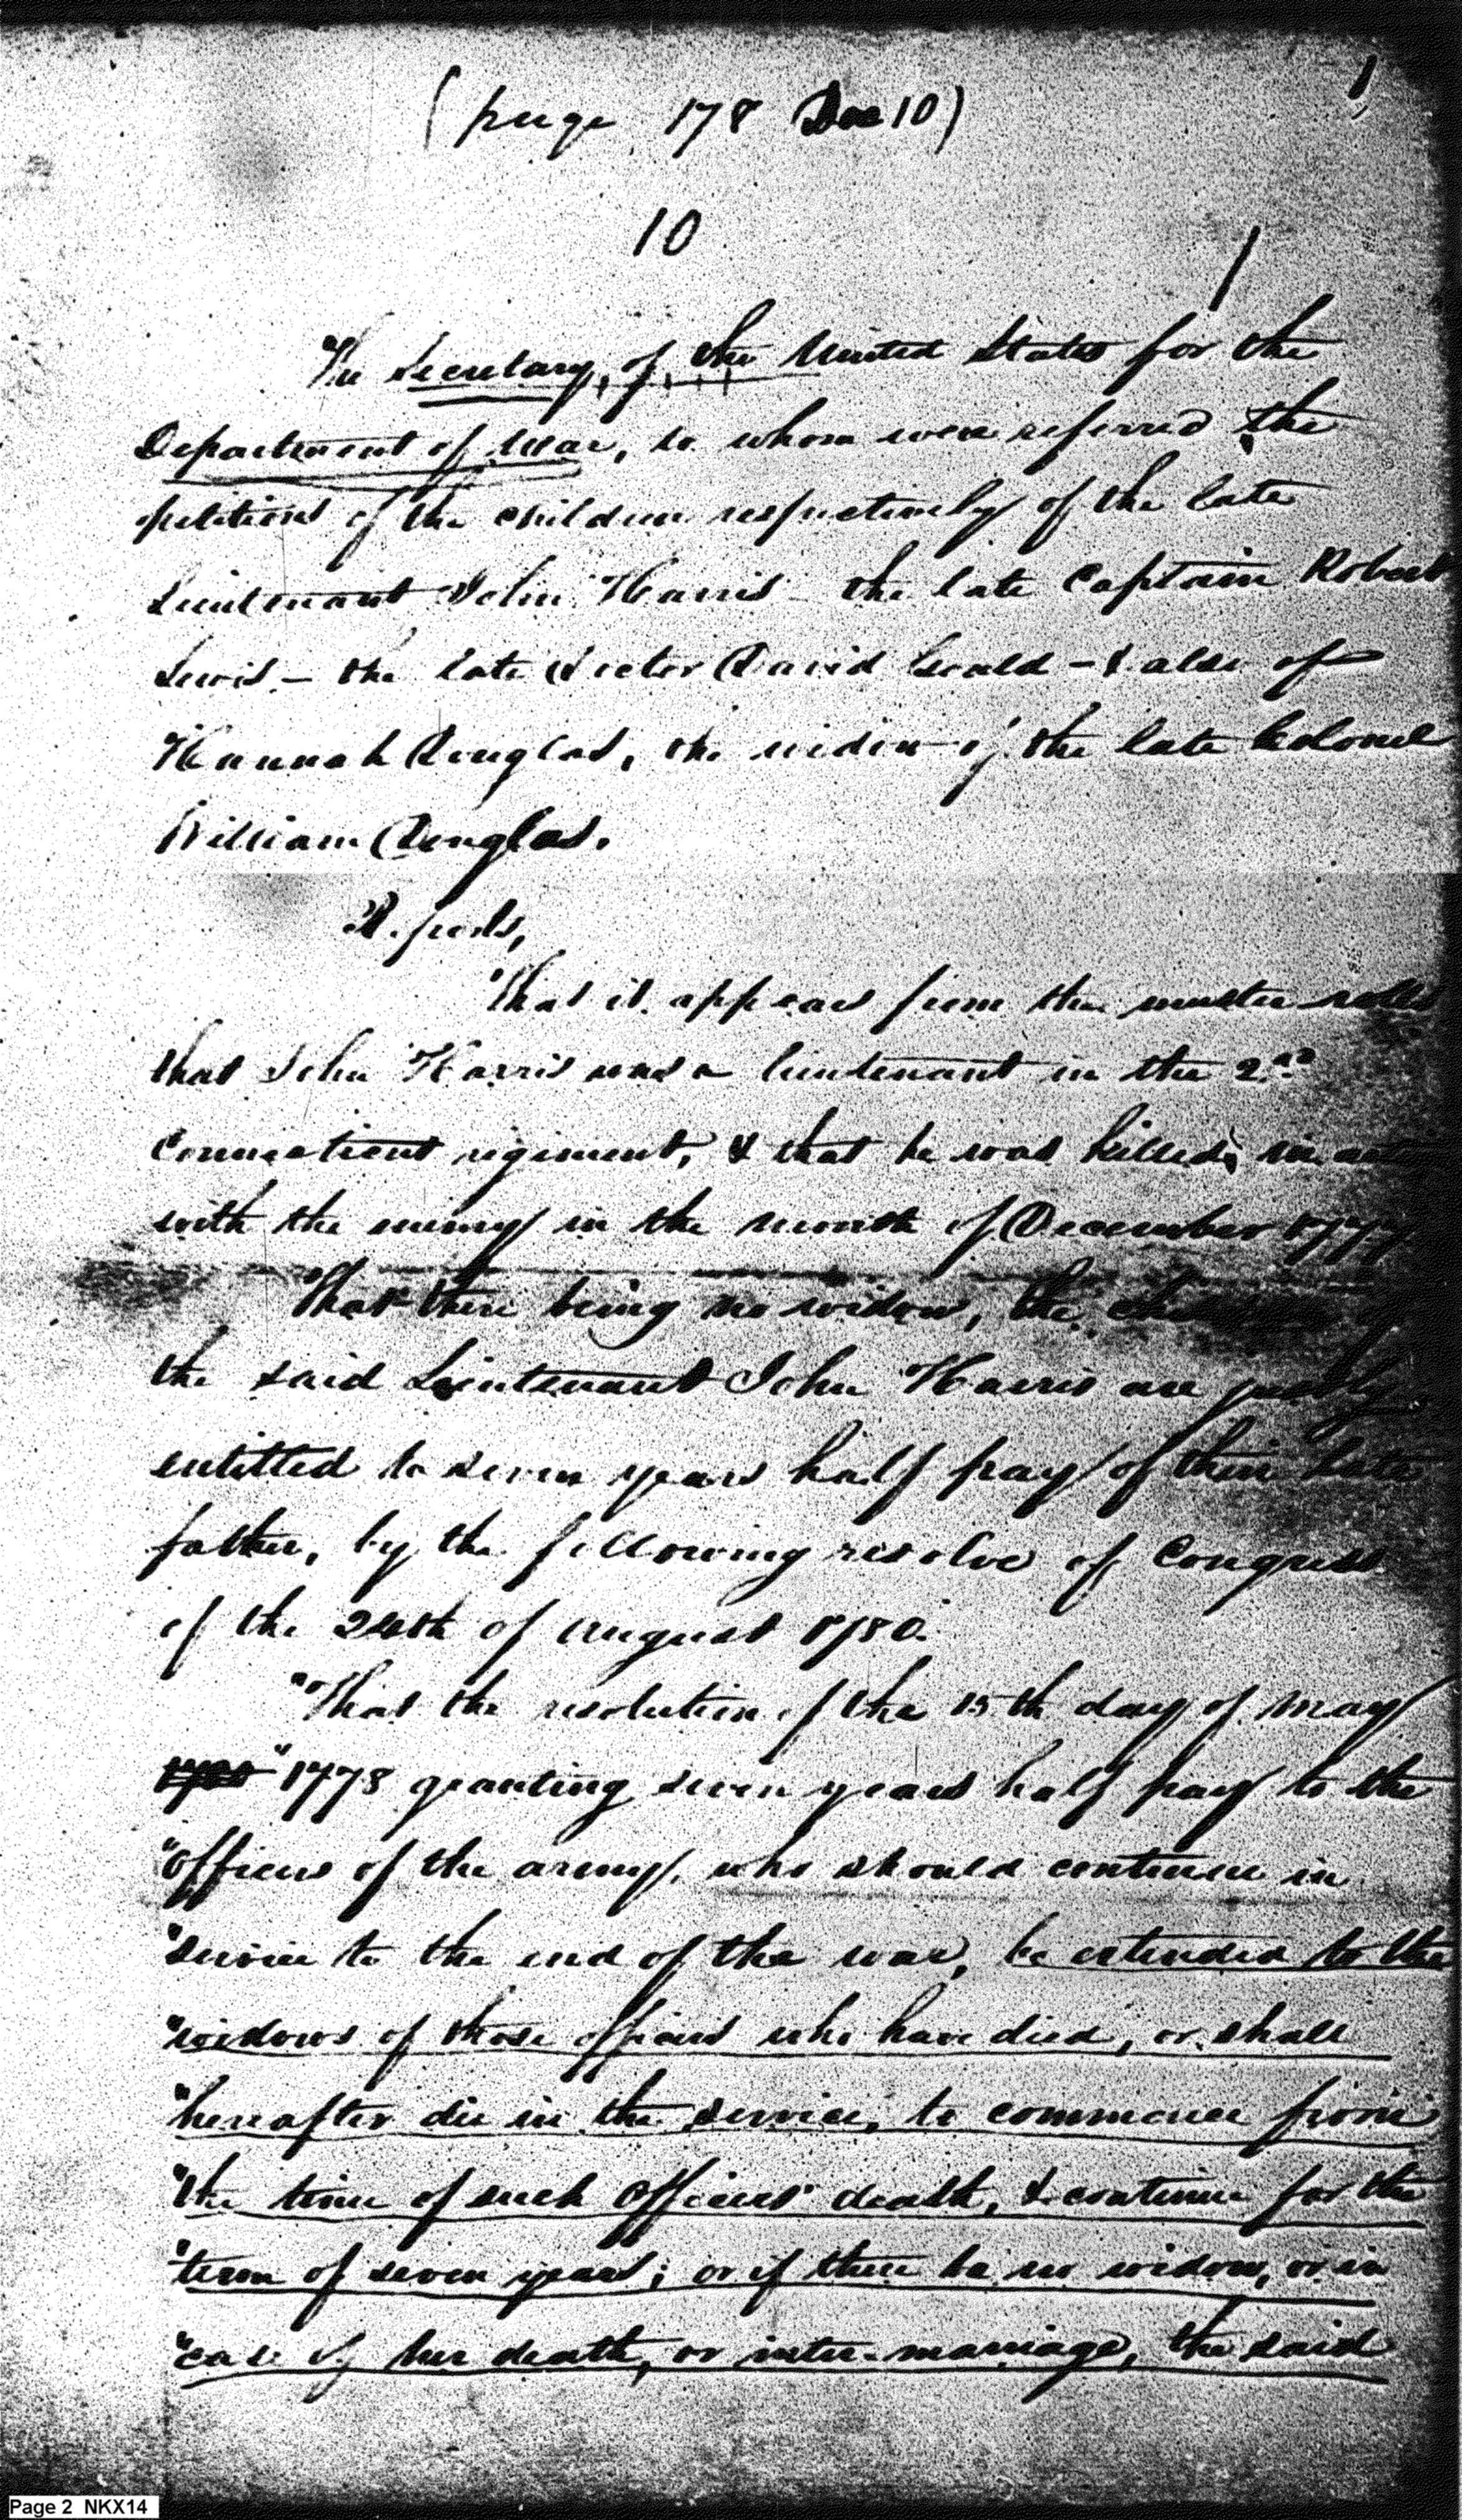 (page 178 Doc 10)
1
10
The Secretary of the United States for the
Department of War, to whom were referred the
petitions of the children respectively of the late
Lieutenant John Harris – the late Captain Robert
Lewis – the late Doctor David Geald – & also of
Hannah Douglas, the widow of the late Colonel
William Douglas.
Reports,
That it appears from the muster rolls
that John Harris was a lieutenant in the 2nd
Connecticut regiment, & that he was killed in
with the enemy in the month of December 1777
That there being no widow, the
the said Lieutenant John Harris are justly
entitled to seven years half pay of their late
father, by the following resolve of Congress
of the 24th of August 1780.
"That the resolution of the 15th day of May
"1778 granting seven years half pay to the
"officers of the army, who should continue in
"service to the end of the war, be extended to the
"widows of those officers who have died, or shall
"hereafter die in the service, to commence from
"the time of such officers' death, & continue for the
"term of seven years; or if there be no widow, or in
"case of her death, or inter-marriage, the said
Page 2 NKX14